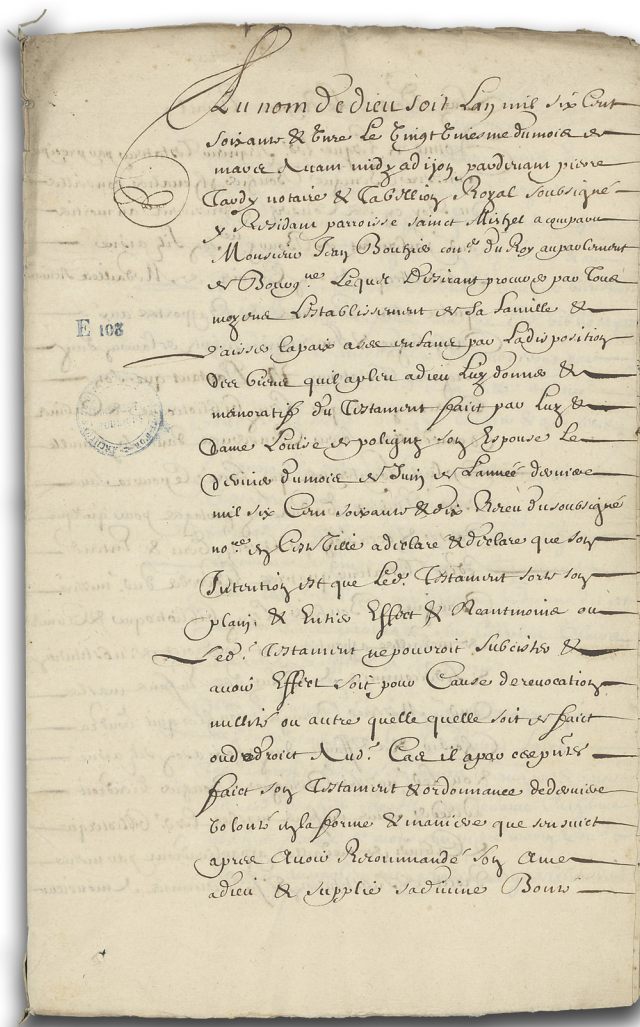 Au nom de dieu soit Lan mil six Cent
soixante & unze Le Vingt Uniesme du mois de
mars Avant midy a dijon pardevant pierre
Tardy notaire & Tabellion Royal soubsigné
y Residant parroisse sainct Michel a comparu
Monsieur Jean Bouhier cons.r du Roy au parlement
de Bourg.ne Lequel Desirant procurer par Tous
moyens L'establissement de sa famille &
E 108
laisser la paix a ses enfans par La disposition
des biens quil a pleu a dieu Luy donner &
memoratifs du Testament faict par Luy &
dame Louise de poligny son Espouse Le
du mois de Juin de Lannée derniere
mil six Cens soixante & dix Receu du soubsigné
no.re en Ceste Ville a declare & declare que son
Intention est que Led.t Testament sorte son
plain & Entier Effect & Neantmoins ou
Led.t Testament ne pouvoit subcister &
avoir Effect soit pour Cause de revocation
nullité ou autre quelle quelle soit de faict
ou de droict Aud.t Cas il a par ces p.ntes
faict son Testament & ordonnance de derniere
Volonté en la forme & maniere que sensuict
apres Avoir Recommandé son Ame
a dieu & supplie sa divine Bonté